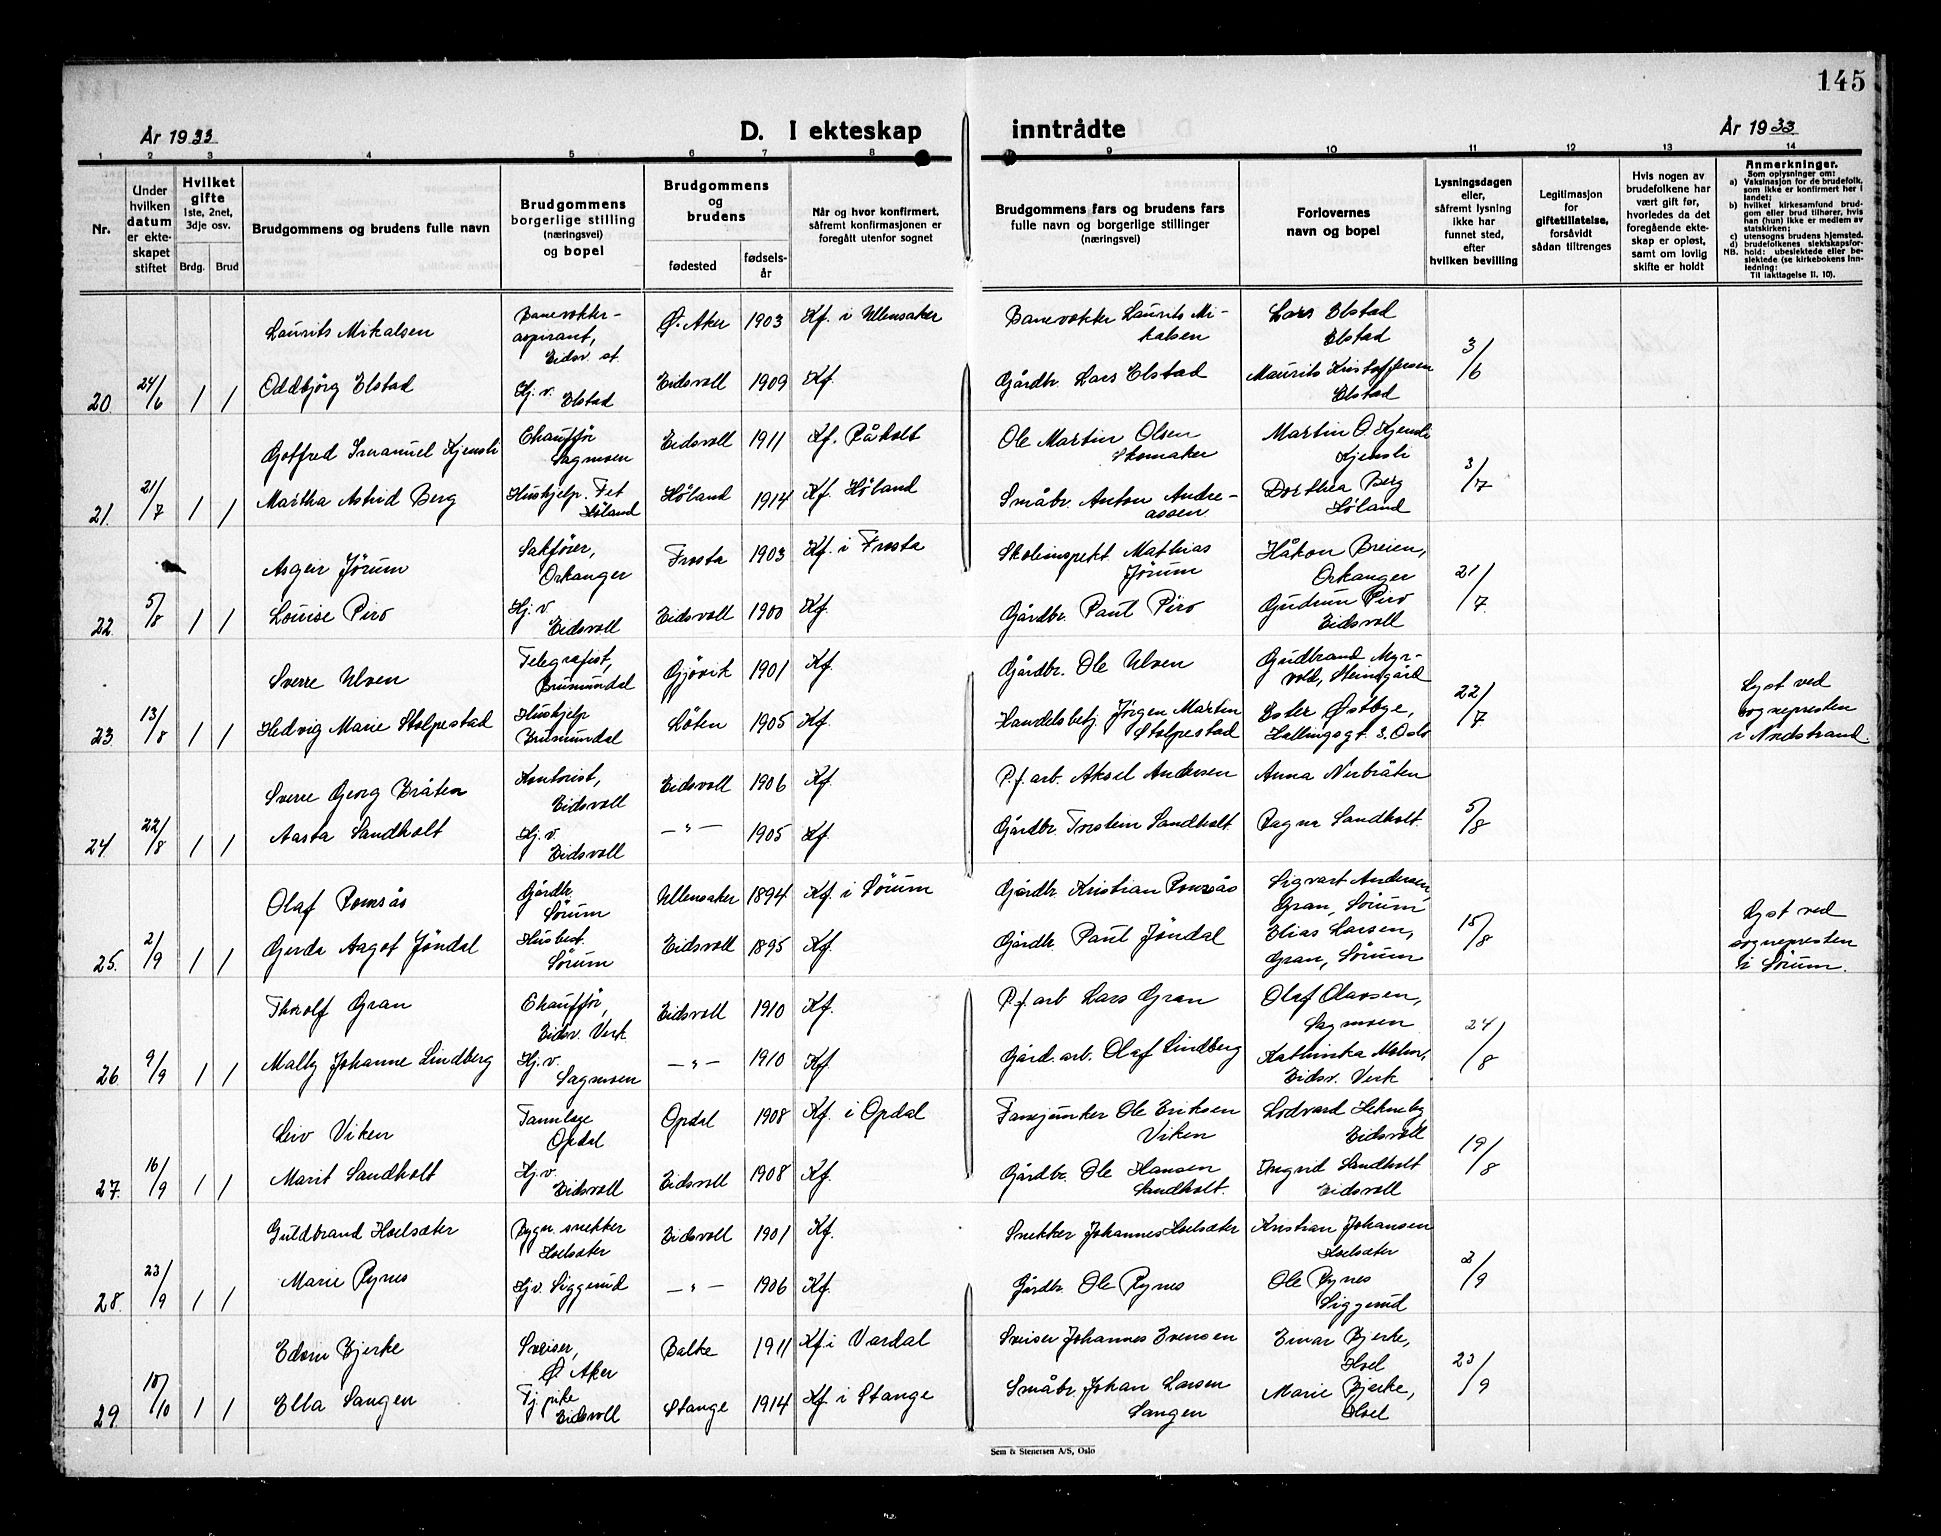 145
År 1933
D. I ekteskap inntrådte
År 1933
1 2 3 4 5 6 7 8 9 10 11 12 13 14
Nr.
Under hvilken datum er ekteskapet stiftet
Hvilket gifte
1ste, 2net, 3dje osv.
Brdg. Brud
Brudgommens og brudens fulle navn
Brudgommens borgerlige stilling (næringsvei) og bopel
Brudgommens og brudens
fødested
fødselsår
Når og hvor konfirmert, såfremt konfirmasjonen er foregått utenfor sognet
Brudgommens fars og brudens fars fulle navn og borgerlige stillinger (næringsvei)
Forlovernes navn og bopel
Lysningsdagen eller, såfremt lysning ikke har funnet sted, efter hvilken bevilling
Legitimasjon for giftetillatelse, forsåvidt sådan tiltrenges
Hvis nogen av brudefolkene har vært gift før, hvorledes da det foregående ekteskap er opløst, samt om lovlig skifte er holdt
Anmerkninger.
Som oplysninger om:
a) Vaksinasjon for de brudefolk, som ikke er konfirmert her i landet;
b) hvilket kirkesamfund brudgom eller brud tilhører, hvis han (hun) ikke er medlem av statskirken;
c) utensogns brudens hjemsted.
d) brudefolkenes slektskapsforhold: ubeslektede eller beslektede (se kirkebokens Innledning:
NB. Til iakttagelse II. 10).
Laurits Mikalsen Banevokter-aspirant, Eidsv. st. Ø. Aker 1903 Kf. i Ullensaker Banevokter Laurits Mikalsen Lars Elstad Elstad
20. 24/6 1 1 Oddbjørg Elstad Hj. v. Elstad Eidsvoll 1909 Kf. Gårdbr. Lars Elstad Maurits Kristoffersen Elstad 3/6
Gotfred Immanuel Kjensli Chauffør Sagmoen Eidsvoll 1911 Kf. Råholt Ole Martin Olsen Skomaker Martin O. Kjensli Kjensli
21. 21/7 1 1 Martha Astrid Berg Hushjelp. Fet Høland Høland 1914 Kf. Høland Småbr. Anton Andreassen Dorthea Berg Høland 3/7
Asgeir Jørum Sakfører, Orkanger Frosta 1903 Kf. i Frosta Skoleinspekt. Mathias Jørum Håkon Breien, Orkanger
22. 5/8 1 1 Louise Piro Hj. v. Eidsvoll Eidsvoll 1900 Kf. Gårdbr. Paul Piro Gudrun Piro Eidsvoll 21/7
Sverre Ulven Telegrafist, Brumundal Gjøvik 1901 Kf. Gårdbr. Ole Ulven Gudbrand Myrvold, Steinsgård
23. 13/8 1 1 Hedvig Marie Stolpestad Hushjelp Brumundal Løten 1905 Kf. Handelsbetj. Jørgen Martin Stolpestad Ester Østbye, Hallingsgt. 3. Oslo 22/7 Lyst ved sognepresten i Nordstrand.
Sverre Georg Bråten Kontorist, Eidsvoll Eidsvoll 1906 Kf. P.f. arb. Aksel Andersen Anna Nerbråten
24. 22/8 1 1 Aasta Sandholt Hj. v. Eidsvoll —"— 1905 Kf. Gårdbr. Torstein Sandholt. Ragna Sandholt. 5/8
Olaf Romsås Gårdbr. Sørum Ullensaker 1894 Kf. i Sørum Gårdbr. Kristian Romsås Sigvart Andersen Gran, Sørum
25. 2/9 1 1 Gerda Aagot Jøndal Husbest. Sørum Eidsvoll 1895 Kf. Gårdbr. Paul Jøndal Elias Larsen, Gran, Sørum 15/8 Lyst ved sognepresten i Sørum.
Thorolf Gran Chauffør, Eidsv. Verk Eidsvoll 1910 Kf. P.f. arb Lars Gran Olaf Olavsen, Sagmoen
26 9/9 1 1 Mally Johanne Lindberg Hj. v. Sagmoen —"— 1910 Kf. Gård. arb. Olaf Lindberg Kathinka Eidsv. Verk 24/8
Leiv Viken Tannlæge Opdal Opdal 1908 Kf. i Opdal Fanejunker Ole Eriksen Viken Lodvard Hekneby Eidsvoll
27. 16/9 1 1 Marit Sandholt Hj. v. Eidsvoll Eidsvoll 1908 Kf. Gårdbr. Ole Hansen Sandholt. Ingrid Sandholt Eidsvoll 19/8
Guldbrand Hoelsæter Bygn. snekker Hoelsæter Eidsvoll 1901 Kf. Snekker Johannes Hoelsæter Kristian Johansen Hoelsæter
28. 23/9 1 1 Marie Rynes Hj.v. Siggerud —"— 1906 Kf. Gårdbr. Ole Rynes Ole Rynes Siggerud 2/9
Edvin Bjerke Sveiser, Ø Aker Balke 1911 Kf. i Vardal Sveiser Johannes Evensen Einar Bjerke, Hoel
29. 15/10 1 1 Ella Sangen Tj. pike Eidsvoll Stange 1914 Kf i Stange Småbr. Johan Larsen Sangen Marie Bjerke, Hoel 23/9
Sem & Stenersen A/S, Oslo